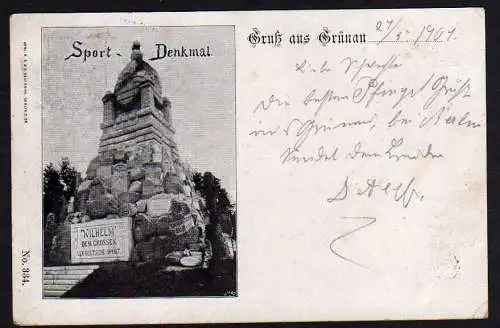 Sport-Denkmal.
Gruß aus Grünau
27/5 1901
Liebe Schwester
Die besten Pfingst Grüße
aus Grünau, bei Berlin
sendet dein Bruder
"WILHELM"
DEM GROSSEN
DER DEUTSCHE SPORT
No. 334.